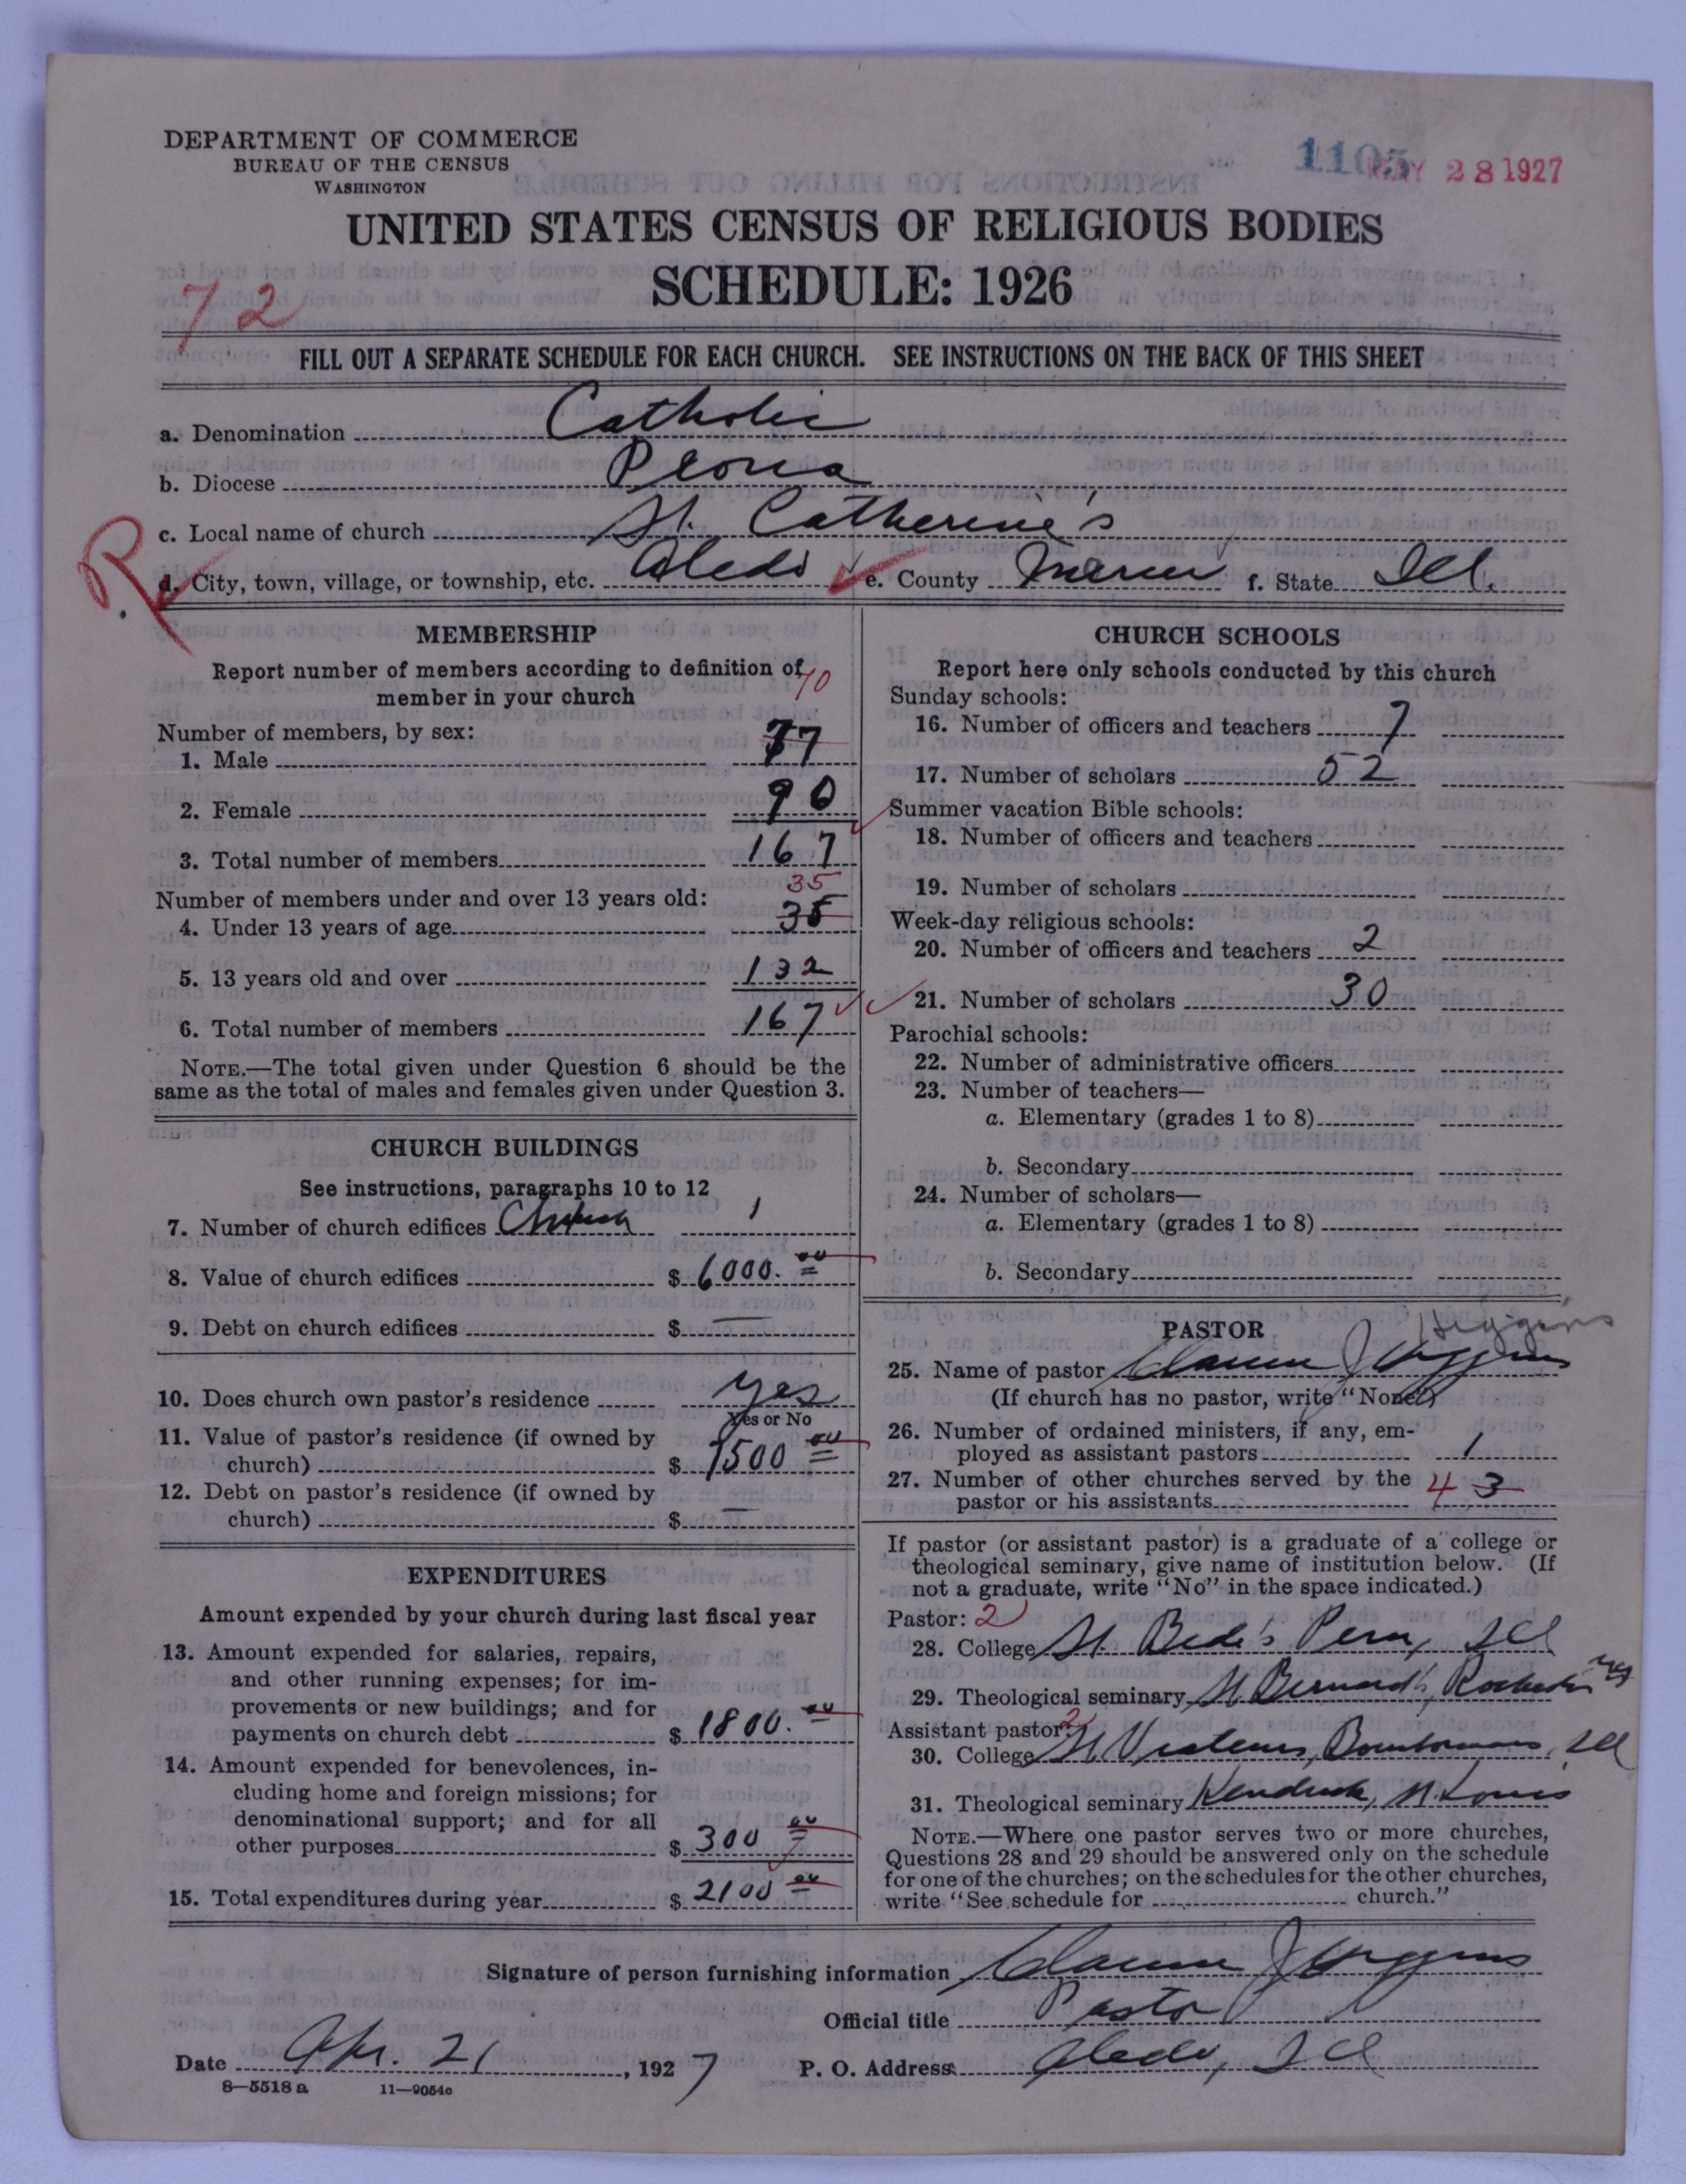 DEPARTMENT OF COMMERCE
BUREAU OF THE CENSUS
WASHINGTON
1105
MAY 28 1927
UNITED STATES CENSUS OF RELIGIOUS BODIES
SCHEDULE: 1926
72
FILL OUT A SEPARATE SCHEDULE FOR EACH CHURCH. SEE INSTRUCTIONS ON THE BACK OF THIS SHEET
a. Denomination Catholic
b. Diocese Peoria
c. Local name of church St. Catherine's
R
d. City, town, village, or township, etc. Aledo e. County Mercer f. State Ill.
MEMBERSHIP
Report number of members according to definition of
member in your church
10
Number of members, by sex:
1. Male 77
2. Female 90
3. Total number of members 167
35
Number of members under and over 13 years old:
4. Under 13 years of age 35
5. 13 years old and over 132
6. Total number of members 167
NOTE.—The total given under Question 6 should be the
same as the total of males and females given under Question 3.
CHURCH BUILDINGS
See instructions, paragraphs 10 to 12
7. Number of church edifices Church 1
8. Value of church edifices $ 6000.00
9. Debt on church edifices $ —
10. Does church own pastor's residence yes
Yes or No
11. Value of pastor's residence (if owned by
church) $ 7500 00
12. Debt on pastor's residence (if owned by
church) $ —
EXPENDITURES
Amount expended by your church during last fiscal year
13. Amount expended for salaries, repairs,
and other running expenses; for im-
provements or new buildings; and for
payments on church debt $ 1800.00
14. Amount expended for benevolences, in-
cluding home and foreign missions; for
denominational support; and for all
other purposes $ 300 00
15. Total expenditures during year $ 2100 00
CHURCH SCHOOLS
Report here only schools conducted by this church
Sunday schools:
16. Number of officers and teachers 7
17. Number of scholars 52
Summer vacation Bible schools:
18. Number of officers and teachers
19. Number of scholars
Week-day religious schools:
20. Number of officers and teachers 2
21. Number of scholars 30
Parochial schools:
22. Number of administrative officers
23. Number of teachers—
a. Elementary (grades 1 to 8)
b. Secondary
24. Number of scholars—
a. Elementary (grades 1 to 8)
b. Secondary
PASTOR
Higgins
25. Name of pastor J Higgins
(If church has no pastor, write "None")
26. Number of ordained ministers, if any, em-
ployed as assistant pastors 1
27. Number of other churches served by the
pastor or his assistants 4 3
If pastor (or assistant pastor) is a graduate of a college or
theological seminary, give name of institution below. (If
not a graduate, write "No" in the space indicated.)
Pastor: 2
28. College St. Bede's Peru, Ill
29. Theological seminary St Bernard's, Rochester NY
Assistant pastor: 2
30. College St Viateurs, Bourbonnais, Ill
31. Theological seminary Kendrick, St. Louis
NOTE.—Where one pastor serves two or more churches,
Questions 28 and 29 should be answered only on the schedule
for one of the churches; on the schedules for the other churches,
write "See schedule for church."
Signature of person furnishing information J Higgins
Official title Pastor
Date Apr. 21, 1927 P. O. Address Aledo, Ill
8—5518 a 11—9054c